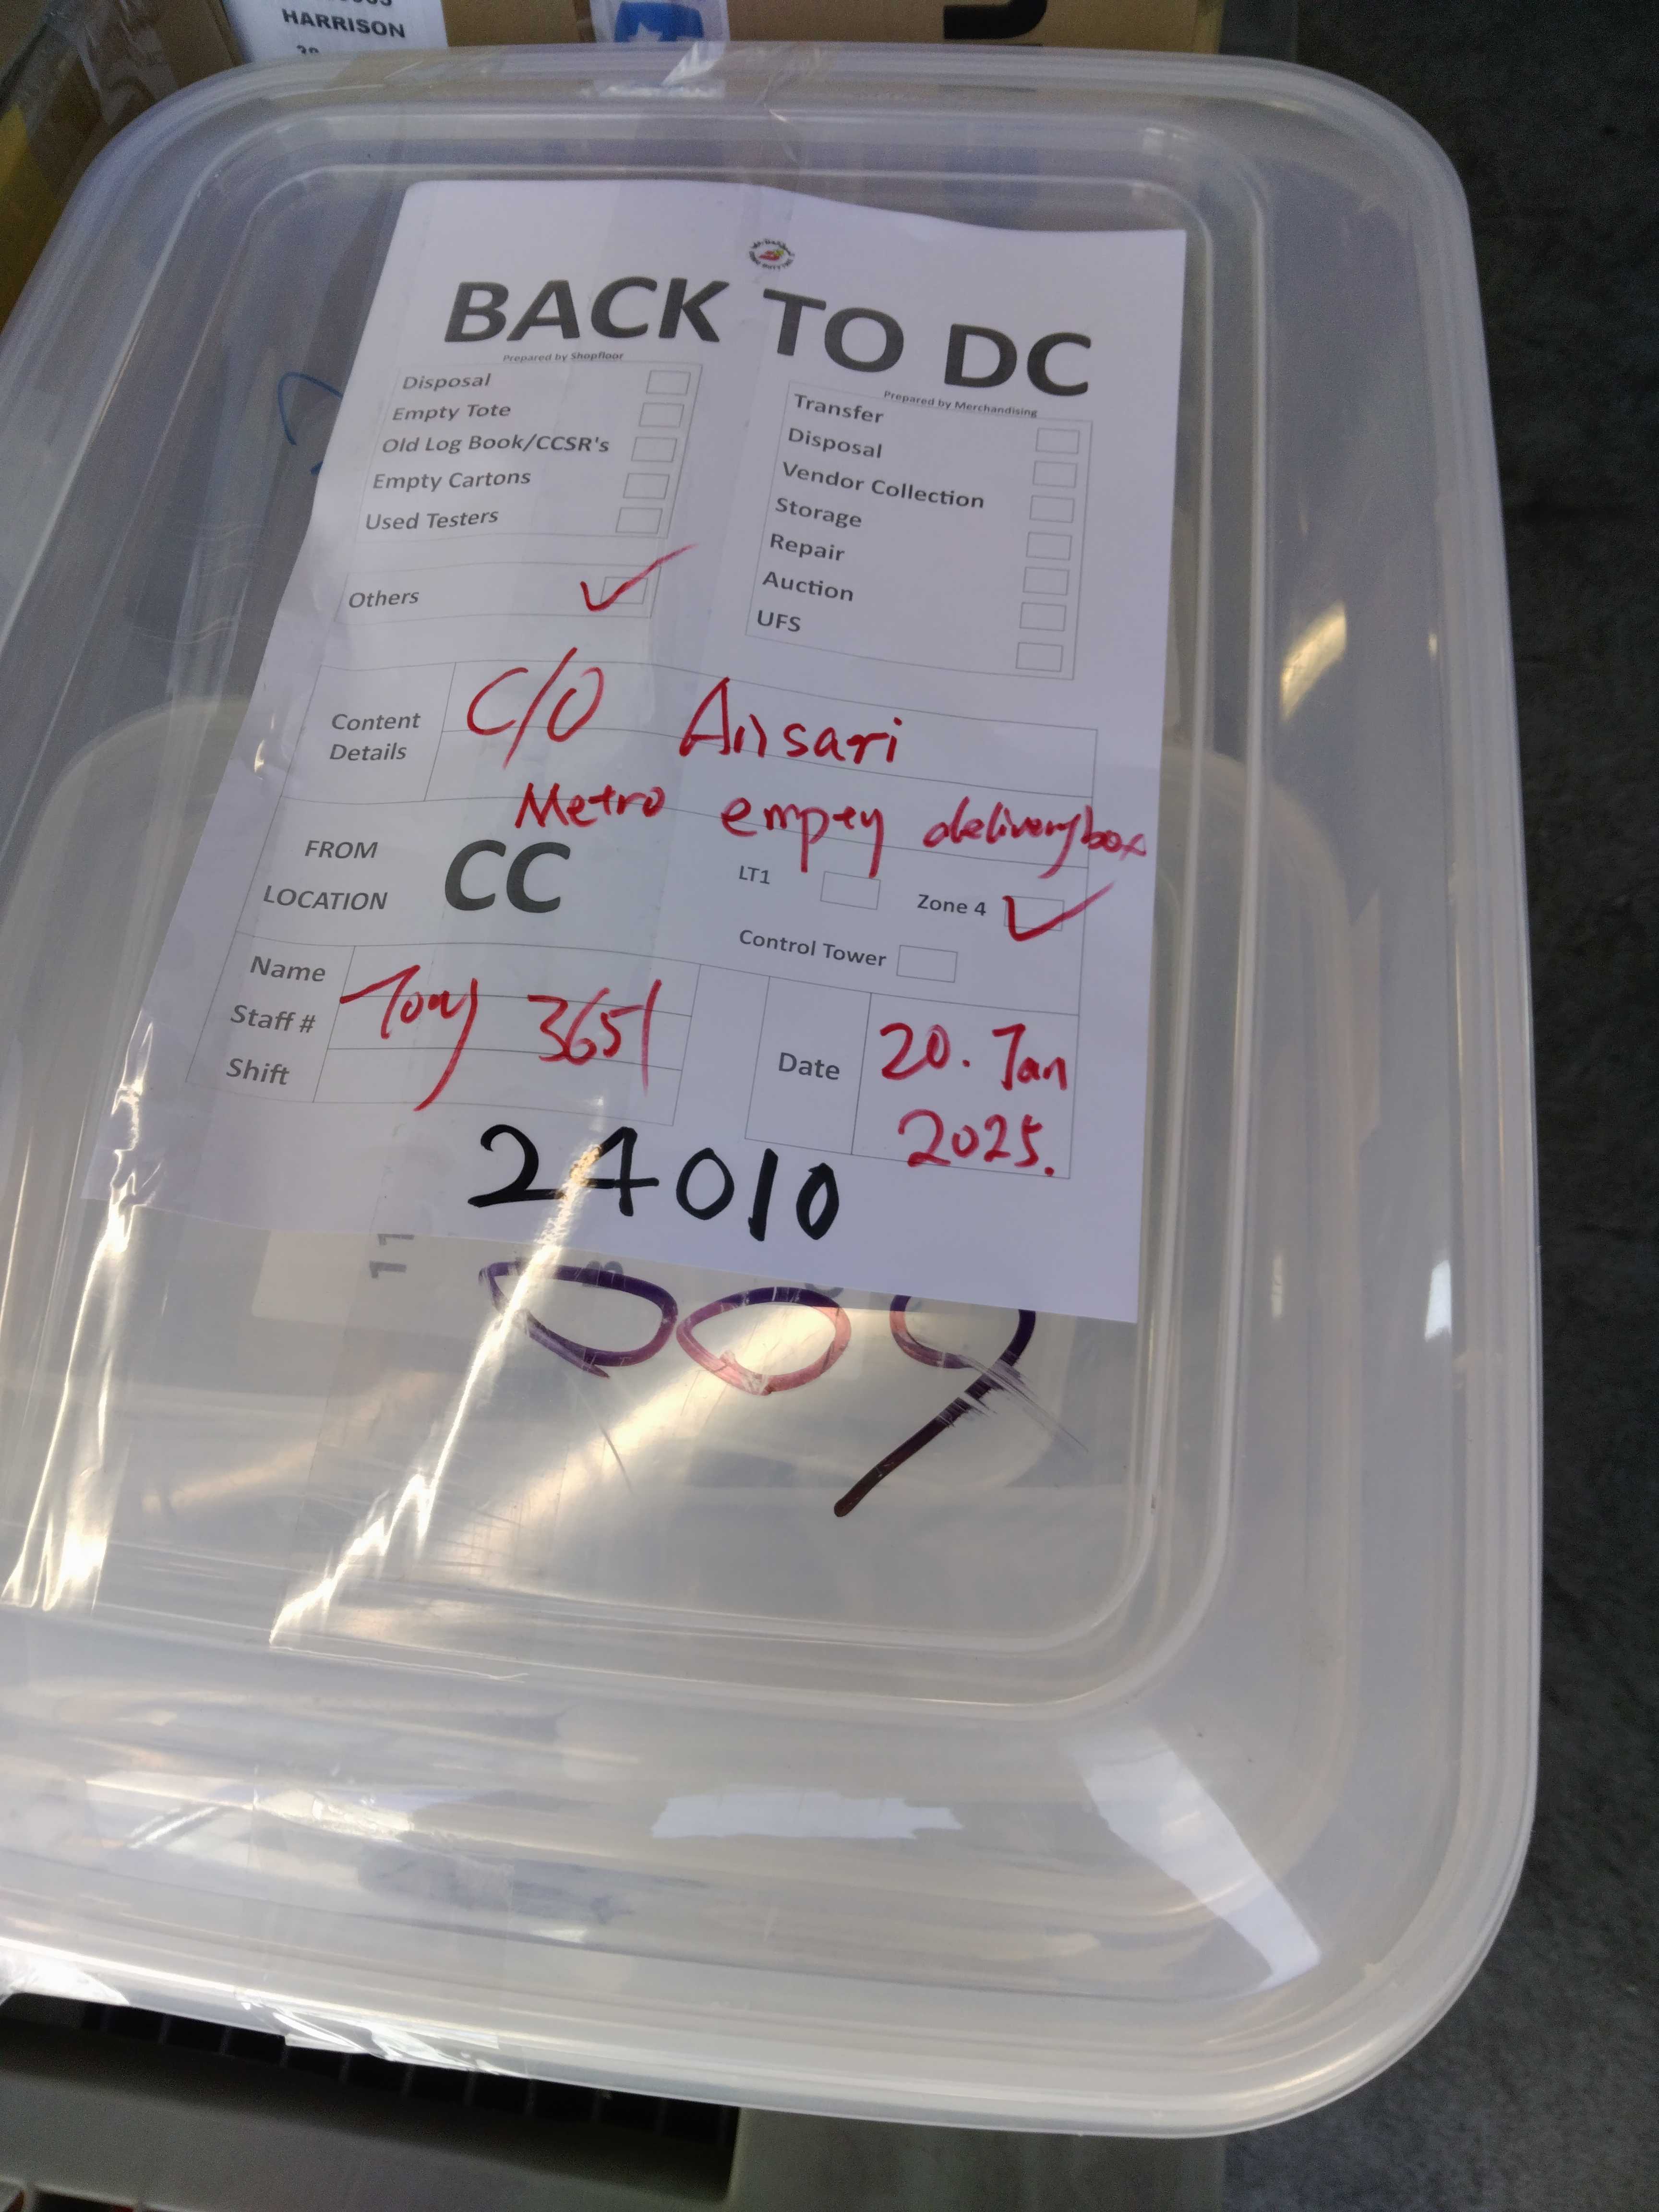 HARRISON
BACK TO DC
Prepared by Shopfloor
Disposal
Empty Tote
Old Log Book/CCSR's
Empty Cartons
Used Testers
Others ✓
Prepared by Merchandising
Transfer
Disposal
Vendor Collection
Storage
Repair
Auction
UFS
Content Details
C/O Ansari
Metro empey deliverybox
FROM
LOCATION
CC
LT1
Zone 4 ✓
Control Tower
Name
Staff #
Shift
Tony 3651
Date
20. Jan
2025.
24010
009